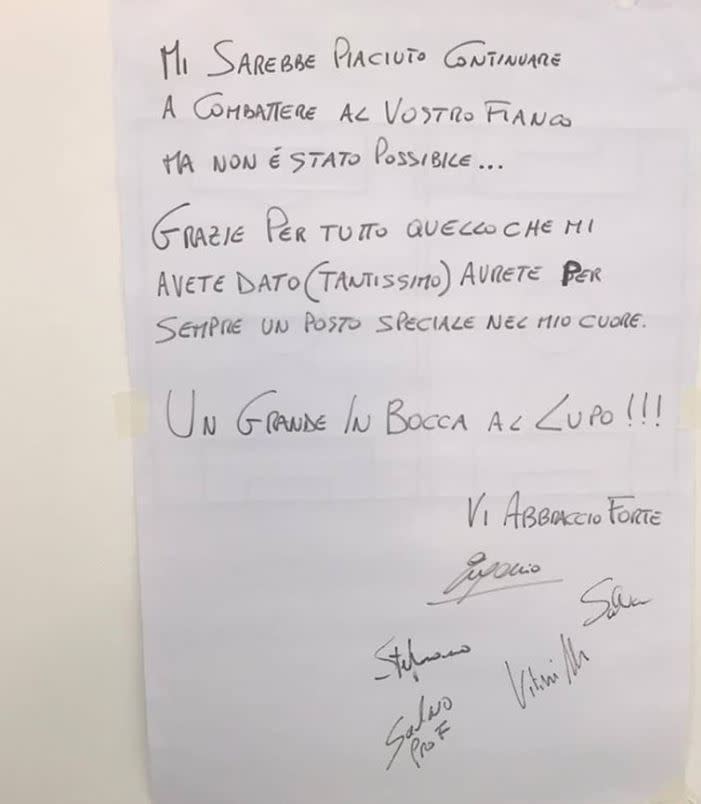 Mi Sarebbe Piaciuto Continuare
a Combattere al Vostro Fianco
ma non é stato possibile...
Grazie per tutto quello che mi
avete dato (tantissimo) avrete per
sempre un posto speciale nel mio cuore.
Un Grande In Bocca al Lupo!!!
Vi Abbraccio Forte
Eugenio
Stefano
Salvo
Prof